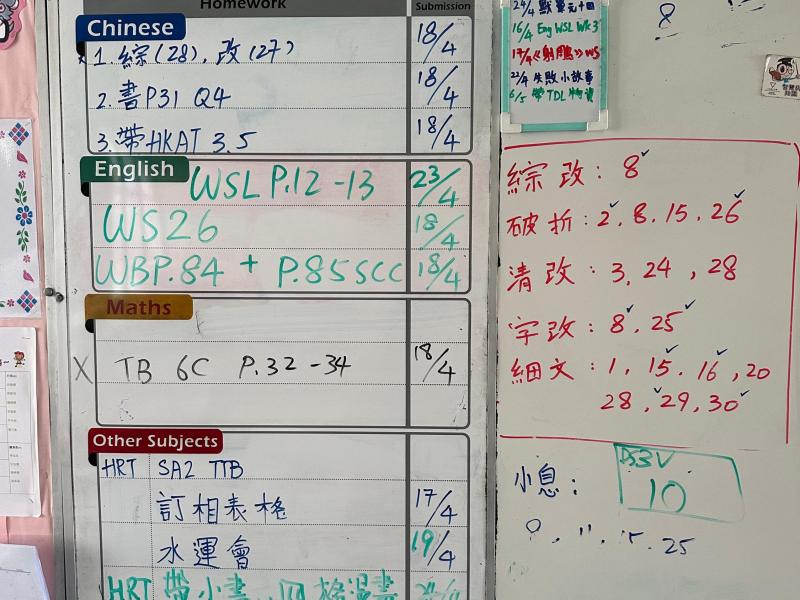 Homework
Submission
Chinese
1. 綜(28), 改(27) 18/4
2. 書P31 Q4 18/4
3. 帶HKAT 3.5 18/4
English
WSL P.12-13 23/4
WS26 18/4
WBP.84 + P.85SCC 18/4
Maths
X TB 6C P.32-34 18/4
Other Subjects
HRT SA2 TTB
訂相表格 17/4
水運會 19/4
HRT 帶小書
24/4
16/4 Eng WSL Wk3
17/4 《射鵰》WS
22/4 失敗小故事
6/5 帶TDL物資
8
綜改: 8
破折: 2, 8, 15, 26
清改: 3, 24, 28
字改: 8, 25
細文: 1, 15, 16, 20
28, 29, 30
小息:
DS3V
10
25